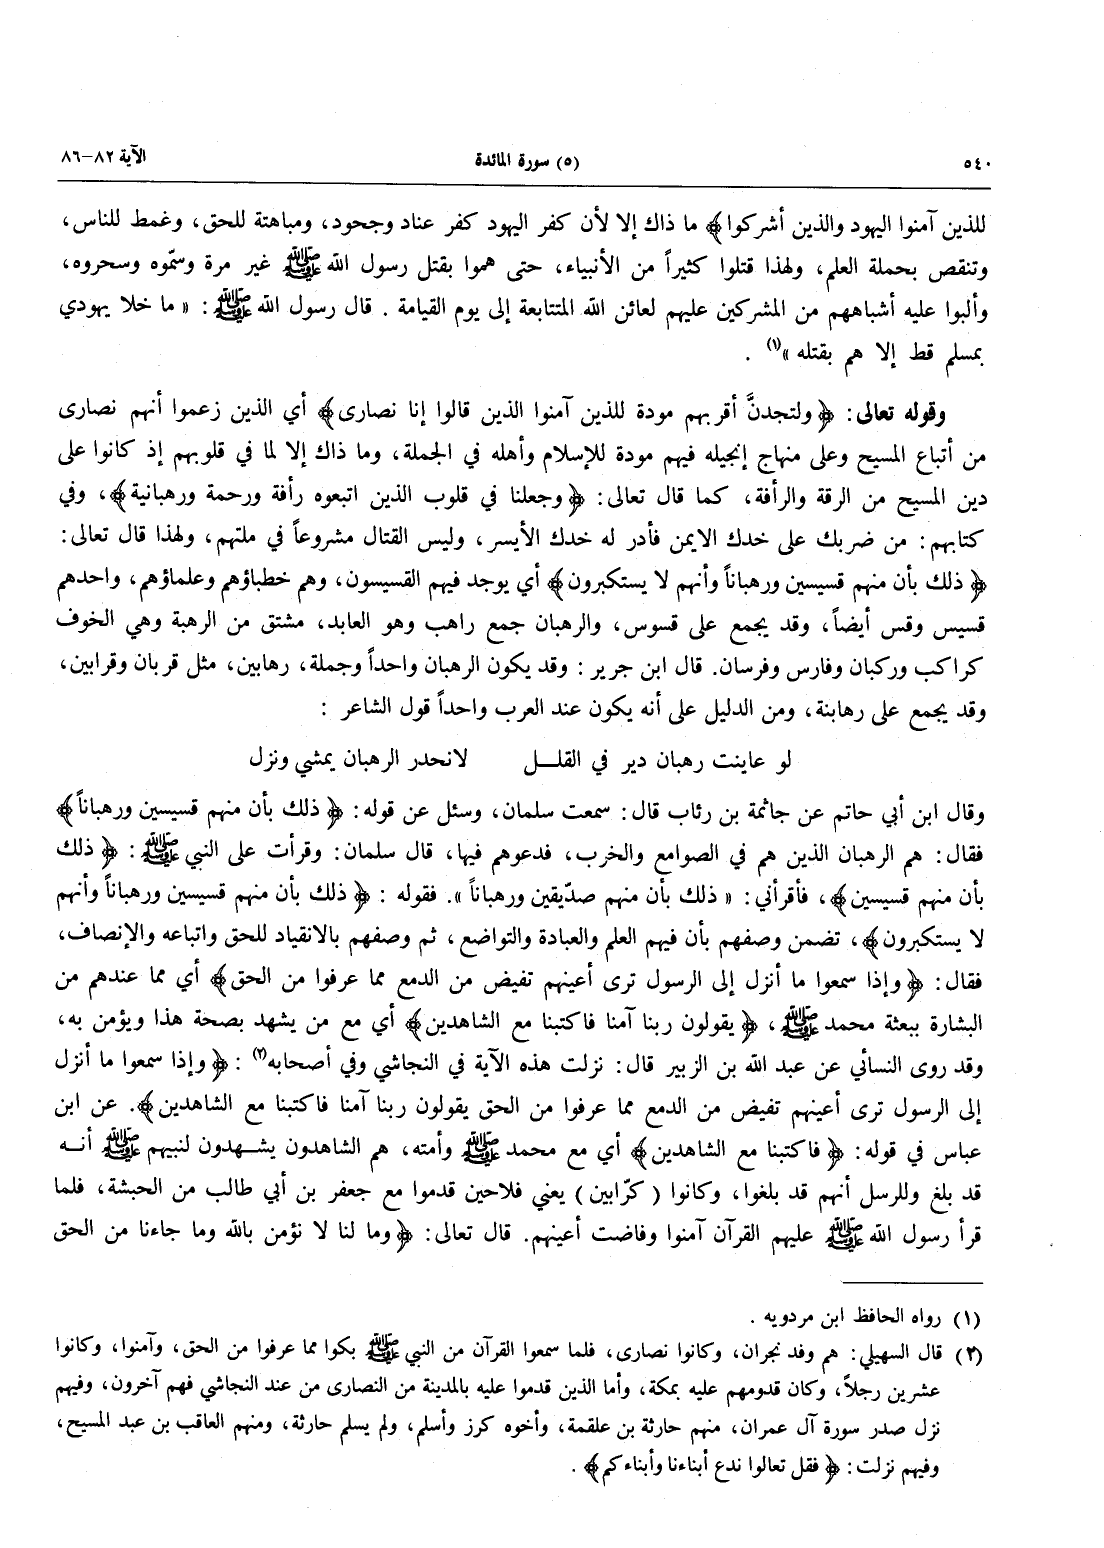 ٥٤٠ (٥) سورة المائدة الآية ٨٢-٨٦
للذين آمنوا اليهود والذين أشركوا﴾ ما ذاك إلا لأن كفر اليهود كفر عناد وجحود، ومباهتة للحق، وغمط للناس،
وتنقص بحملة العلم، ولهذا قتلوا كثيراً من الأنبياء، حتى هموا بقتل رسول الله ﷺ غير مرة وسمّوه وسحروه،
وألبوا عليه أشباههم من المشركين عليهم لعائن الله المتتابعة إلى يوم القيامة . قال رسول الله ﷺ : « ما خلا يهودي
بمسلم قط إلا هم بقتله »(١) .
وقوله تعالى: ﴿ولتجدنَّ أقربهم مودة للذين آمنوا الذين قالوا إنا نصارى﴾ أي الذين زعموا أنهم نصارى
من أتباع المسيح وعلى منهاج إنجيله فيهم مودة للإسلام وأهله في الجملة، وما ذاك إلا لما في قلوبهم إذ كانوا على
دين المسيح من الرقة والرأفة، كما قال تعالى: ﴿وجعلنا في قلوب الذين اتبعوه رأفة ورحمة ورهبانية﴾، وفي
كتابهم: من ضربك على خدك الايمن فأدر له خدك الأيسر، وليس القتال مشروعاً في ملتهم، ولهذا قال تعالى:
﴿ذلك بأن منهم قسيسين ورهباناً وأنهم لا يستكبرون﴾ أي يوجد فيهم القسيسون، وهم خطباؤهم وعلماؤهم، واحدهم
قسيس وقس أيضاً، وقد يجمع على قسوس، والرهبان جمع راهب وهو العابد، مشتق من الرهبة وهي الخوف
كراكب وركبان وفارس وفرسان. قال ابن جرير : وقد يكون الرهبان واحداً وجملة، رهابين، مثل قربان وقرابين،
وقد يجمع على رهابنة، ومن الدليل على أنه يكون عند العرب واحداً قول الشاعر :
لو عاينت رهبان دير في القلـــل لانحدر الرهبان يمشي ونزل
وقال ابن أبي حاتم عن جاثمة بن رئاب قال: سمعت سلمان، وسئل عن قوله: ﴿ذلك بأن منهم قسيسين ورهباناً﴾
فقال: هم الرهبان الذين هم في الصوامع والخرب، فدعوهم فيها، قال سلمان: وقرأت على النبي ﷺ : ﴿ذلك
بأن منهم قسيسين﴾، فأقرأني: « ذلك بأن منهم صدّيقين ورهباناً ». فقوله : ﴿ذلك بأن منهم قسيسين ورهباناً وأنهم
لا يستكبرون﴾، تضمن وصفهم بأن فيهم العلم والعبادة والتواضع، ثم وصفهم بالانقياد للحق واتباعه والإنصاف،
فقال: ﴿وإذا سمعوا ما أنزل إلى الرسول ترى أعينهم تفيض من الدمع مما عرفوا من الحق﴾ أي مما عندهم من
البشارة ببعثة محمد ﷺ ، ﴿يقولون ربنا آمنا فاكتبنا مع الشاهدين﴾ أي مع من يشهد بصحة هذا ويؤمن به،
وقد روى النسائي عن عبد الله بن الزبير قال: نزلت هذه الآية في النجاشي وفي أصحابه(٢) : ﴿وإذا سمعوا ما أنزل
إلى الرسول ترى أعينهم تفيض من الدمع مما عرفوا من الحق يقولون ربنا آمنا فاكتبنا مع الشاهدين﴾. عن ابن
عباس في قوله: ﴿فاكتبنا مع الشاهدين﴾ أي مع محمد ﷺ وأمته، هم الشاهدون يشـهدون لنبيهم ﷺ أنـه
قد بلغ وللرسل أنهم قد بلغوا، وكانوا ( كرّابين ) يعني فلاحين قدموا مع جعفر بن أبي طالب من الحبشة، فلما
قرأ رسول الله ﷺ عليهم القرآن آمنوا وفاضت أعينهم. قال تعالى: ﴿وما لنا لا نؤمن بالله وما جاءنا من الحق
(١) رواه الحافظ ابن مردويه .
(٢) قال السهيلي: هم وفد نجران، وكانوا نصارى، فلما سمعوا القرآن من النبي ﷺ بكوا مما عرفوا من الحق، وآمنوا، وكانوا
عشرين رجلاً، وكان قدومهم عليه بمكة، وأما الذين قدموا عليه بالمدينة من النصارى من عند النجاشي فهم آخرون، وفيهم
نزل صدر سورة آل عمران، منهم حارثة بن علقمة، وأخوه كرز وأسلم، ولم يسلم حارثة، ومنهم العاقب بن عبد المسيح،
وفيهم نزلت: ﴿فقل تعالوا ندع أبناءنا وأبناءكم﴾ .